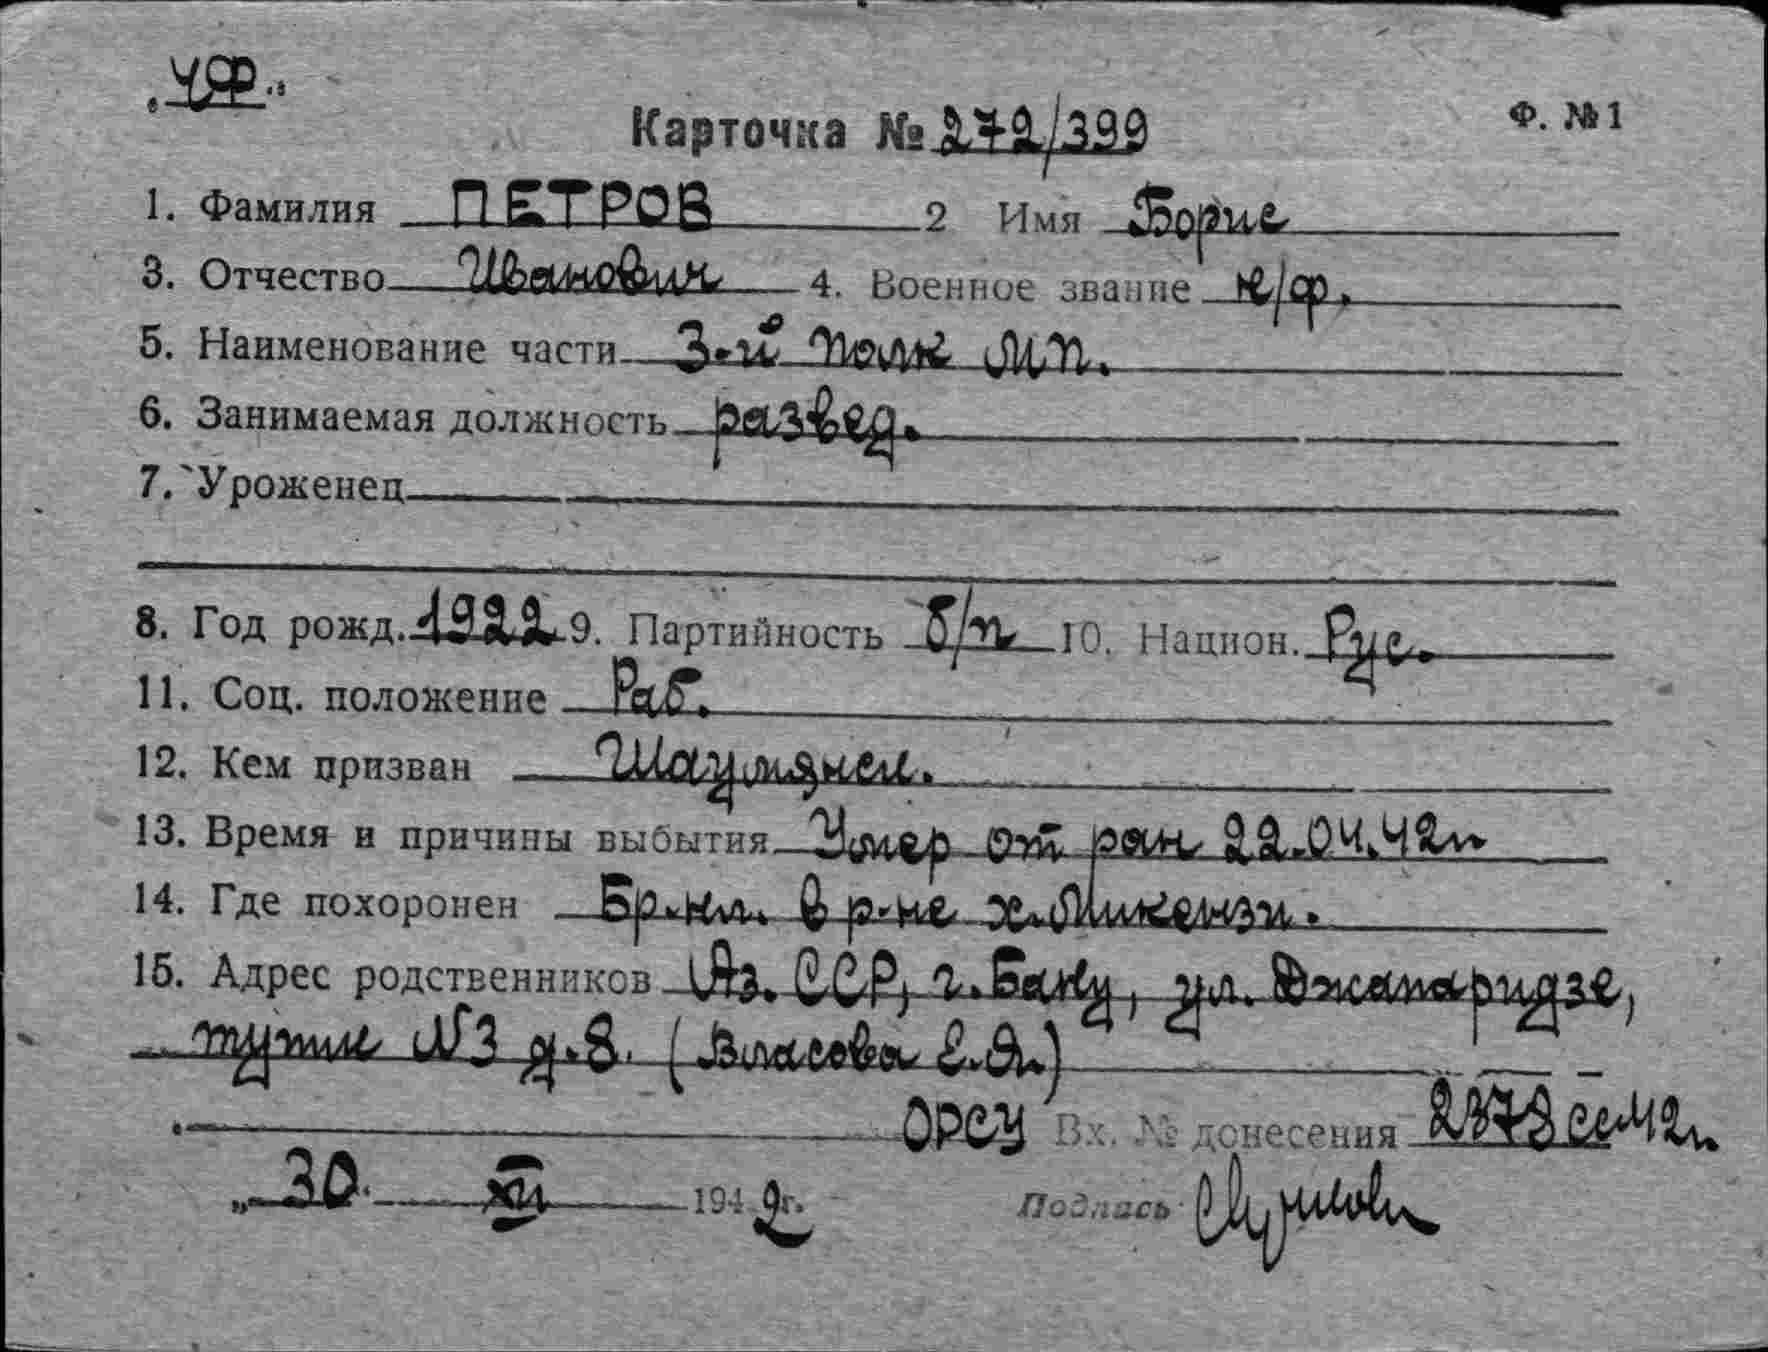 "ЧФ."
Ф. №1
Карточка № 272/399
1. Фамилия ПЕТРОВ 2 Имя Борис
3. Отчество Иванович 4. Военное звание к/ф.
5. Наименование части 3-й полк МП.
6. Занимаемая должность развед.
7. Уроженец
8. Год рожд. 1922 9. Партийность б/п 10. Национ. Рус.
11. Соц. положение Раб.
12. Кем призван Шаумянск.
13. Время и причины выбытия Умер от ран 22.04.42г
14. Где похоронен Бр. мл. в р-не х. Микензи.
15. Адрес родственников Аз. ССР, г. Баку, ул. Джапаридзе,
тупик N3 д. 8. (Власова Е.Я.)
ОРСУ Вх. № донесения 2378 сс 42г
„ 30. XII 1942г. Подпись